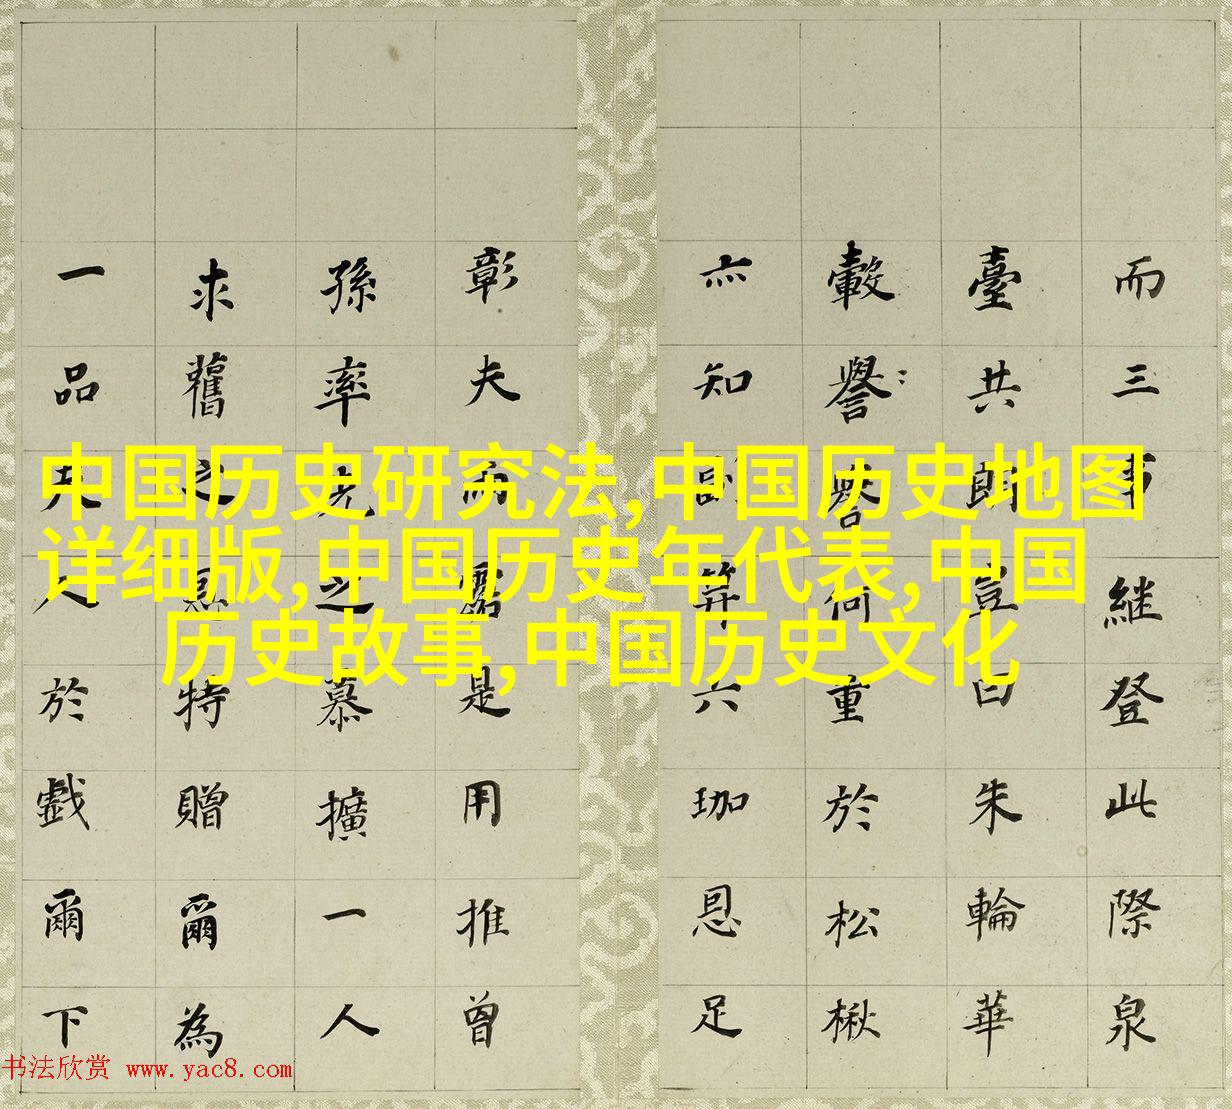 中国历史研究法,中国历史地图
详细版,中国历史年代表,中国
历史故事,中国历史文化
而三事继登此際泉
臺共豈曰朱輪華
轂譽何重於松楸
亦知副笄六珈恩足
彰夫而是用推曾
孫率先之慕擴一人
求舊之恩特贈爾為
一品夫人於戲爾下
书法欣赏 www.yac8.com